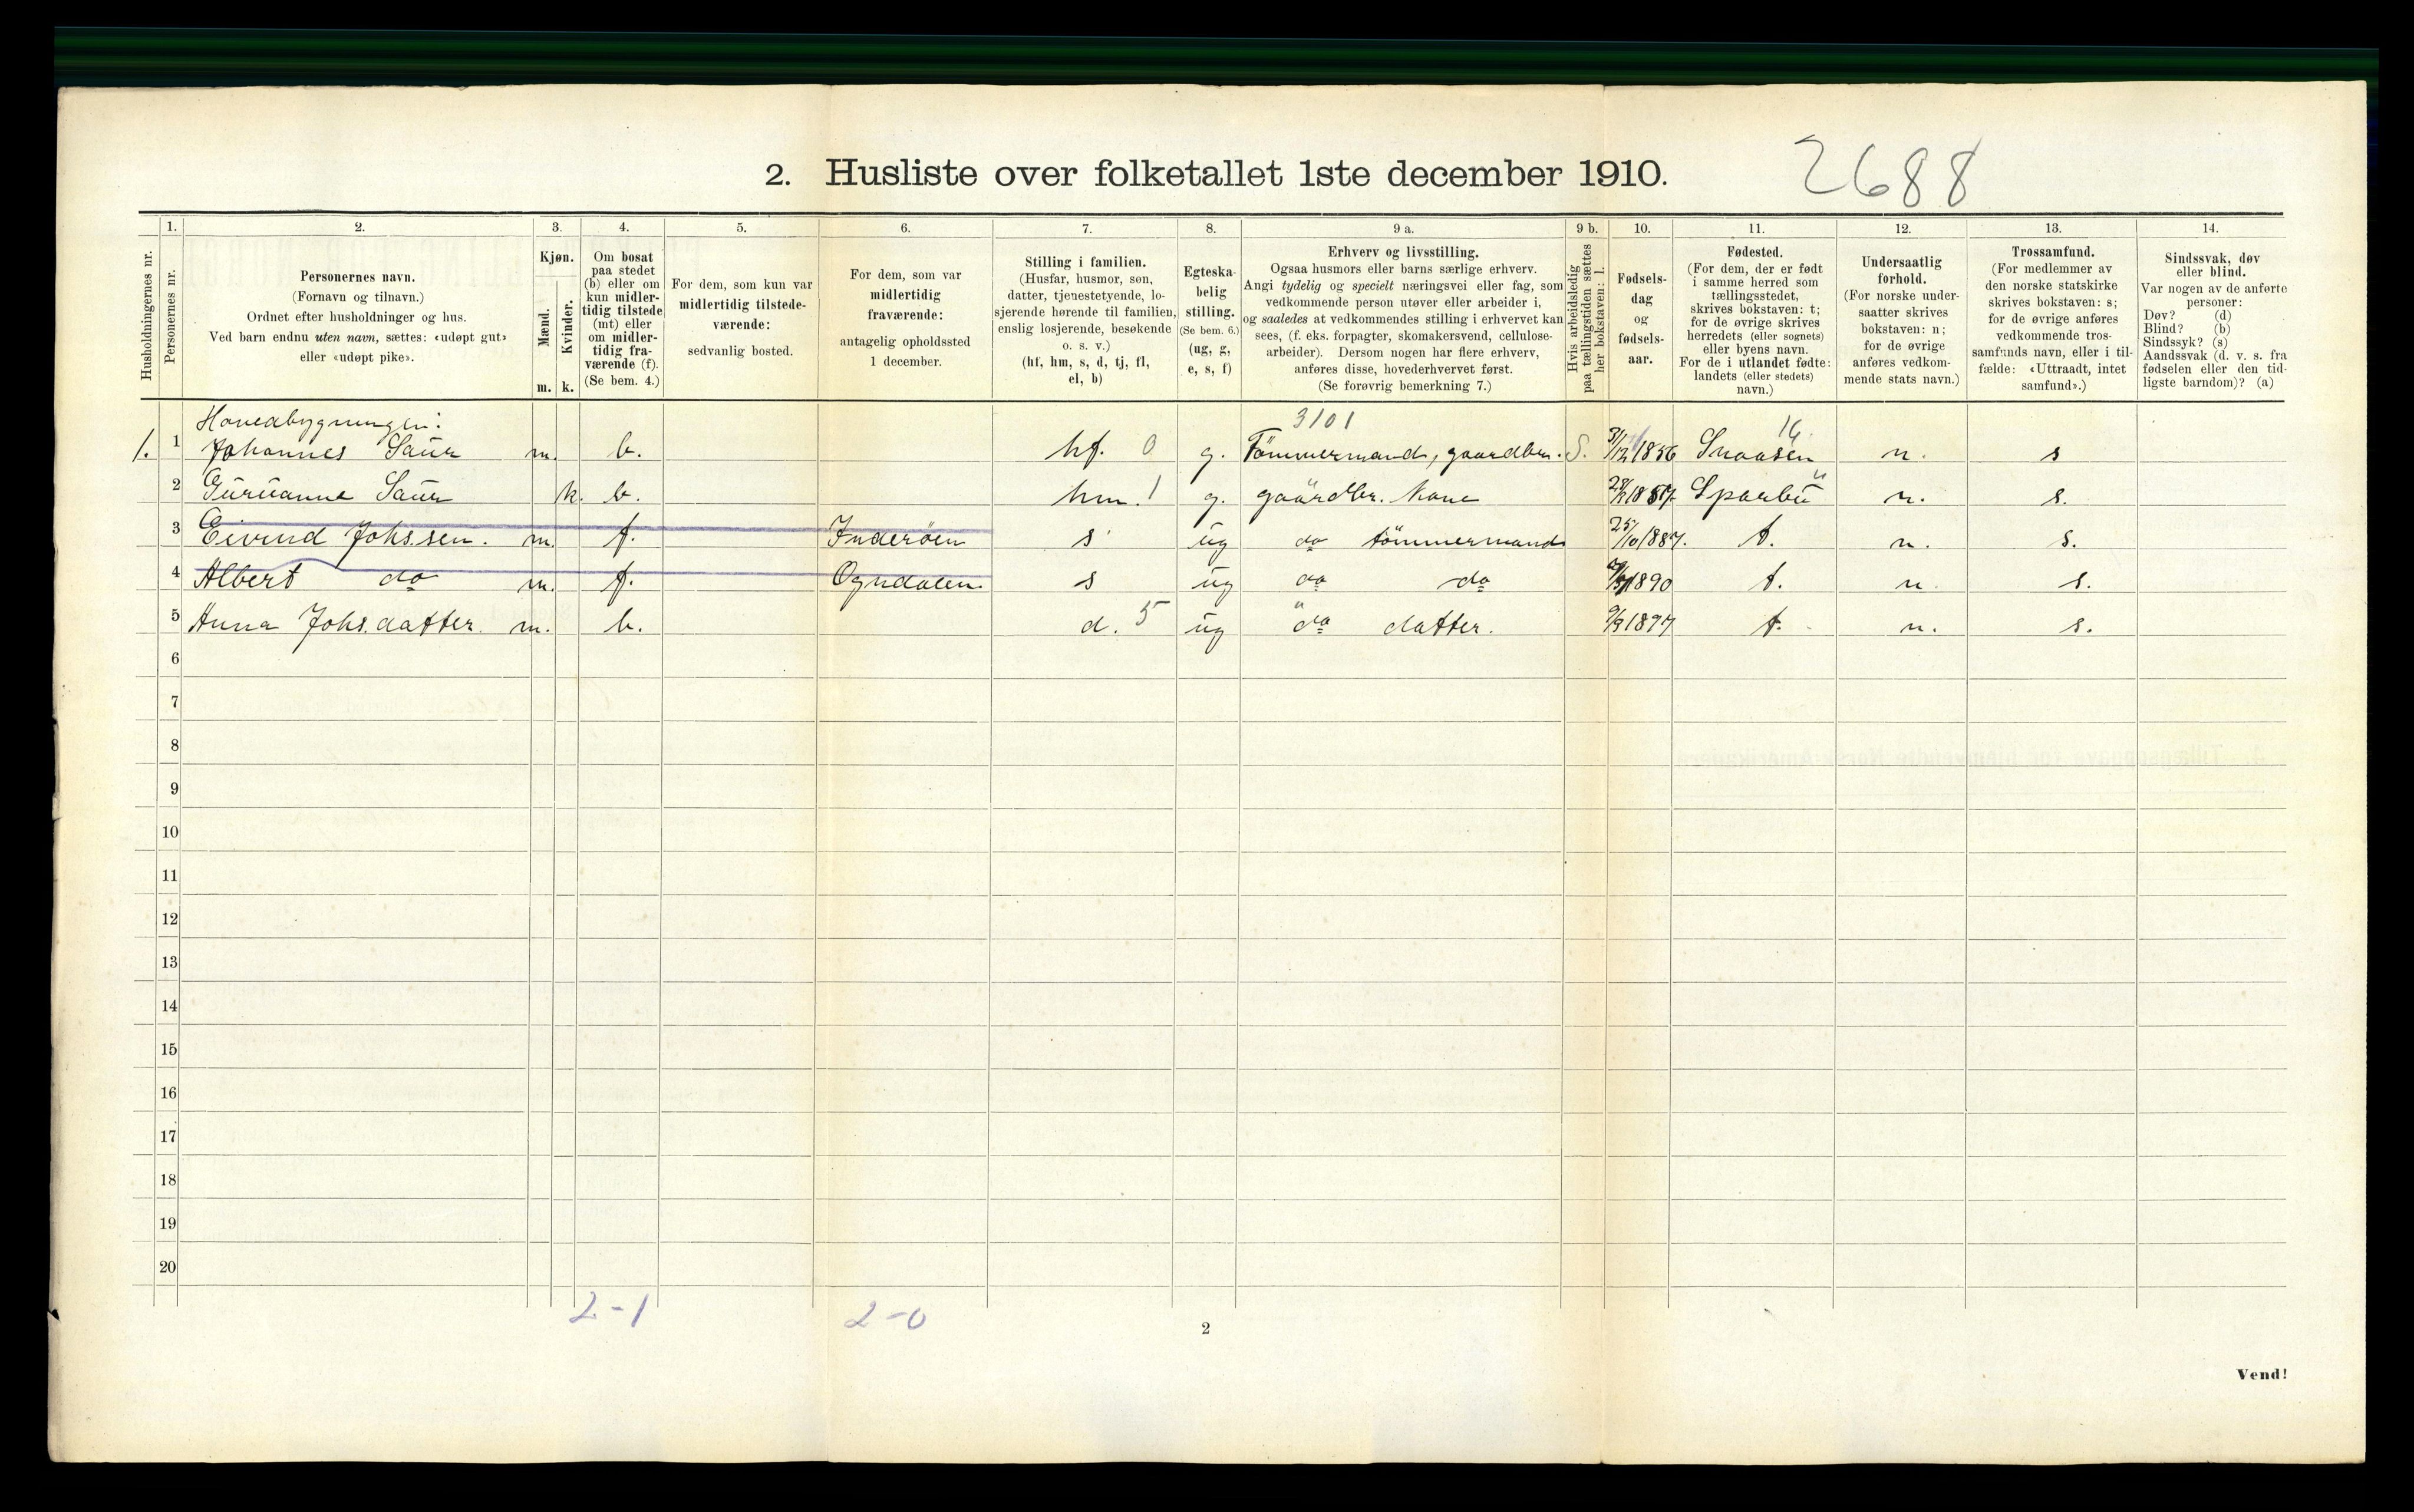 2. Husliste over folketallet 1ste december 1910. 2688
1. 2. 3. 4. 5. 6. 7. 8. 9 a. 9 b. 10. 11. 12. 13. 14.
Husholdningernes nr.
Personernes nr.
Personernes navn.
(Fornavn og tilnavn.)
Ordnet efter husholdninger og hus.
Ved barn endnu uten navn, sættes: «udøpt gut»
eller «udøpt pike».
Kjøn.
Mænd.
Kvinder.
m. k.
Om bosat
paa stedet
(b) eller om
kun midler-
tidig tilstede
(mt) eller
om midler-
tidig fra-
værende (f).
(Se bem. 4.)
For dem, som kun var
midlertidig tilstede-
værende:
sedvanlig bosted.
For dem, som var
midlertidig
fraværende:
antagelig opholdssted
1 december.
Stilling i familien.
(Husfar, husmor, søn,
datter, tjenestetyende, lo-
sjerende hørende til familien,
enslig losjerende, besøkende
o. s. v.)
(hf, hm, s, d, tj, fl,
el, b)
Egteska-
belig
stilling.
(Se bem. 6.)
(ug, g,
e, s, f)
Erhverv og livsstilling.
Ogsaa husmors eller barns særlige erhverv.
Angi tydelig og specielt næringsvei eller fag, som
vedkommende person utøver eller arbeider i,
og saaledes at vedkommendes stilling i erhvervet kan
sees, (f. eks. forpagter, skomakersvend, cellulose-
arbeider). Dersom nogen har flere erhverv,
anføres disse, hovederhvervet først.
(Se forøvrig bemerkning 7.)
Hvis arbeidsledig
paa tællingstiden sættes
her bokstaven: l.
Fødsels-
dag
og
fødsels-
aar.
Fødested.
(For dem, der er født
i samme herred som
tællingsstedet,
skrives bokstaven: t;
for de øvrige skrives
herredets (eller sognets)
eller byens navn.
For de i utlandet fødte:
landets (eller stedets)
navn.)
Undersaatlig
forhold.
(For norske under-
saatter skrives
bokstaven: n;
for de øvrige
anføres vedkom-
mende stats navn.)
Trossamfund.
(For medlemmer av
den norske statskirke
skrives bokstaven: s;
for de øvrige anføres
vedkommende tros-
samfunds navn, eller i til-
fælde: «Uttraadt, intet
samfund».)
Sindssvak, døv
eller blind.
Var nogen av de anførte
personer:
Døv? (d)
Blind? (b)
Sindssyk? (s)
Aandssvak (d. v. s. fra
fødselen eller den tid-
ligste barndom)? (a)
Hovedbygningen: 3101 16
1. 1 Johannes Saur m. b. hf. 0 g. Tömmermand, gaardbr. S. 31/12 1856 Snaasen n. s
2 Guruanne Saur k. b. hm. 1 g. gaardbr. Kone 1857 Sparbu " n. s.
3 Eivind Johssen. m. f. Inderöen s ug do tömmermand 25/10 1887. t. n. s.
4 Albert do m. f. Ogndalen. s ug do do 1890 t. n. s.
5 Anna Johs.datter. m. b. d. 5 ug do datter. 9/9 1897 t. n. s.
6
7
8
9
10
11
12
13
14
15
16
17
18
19
20
2-1 2-0
2
Vend!